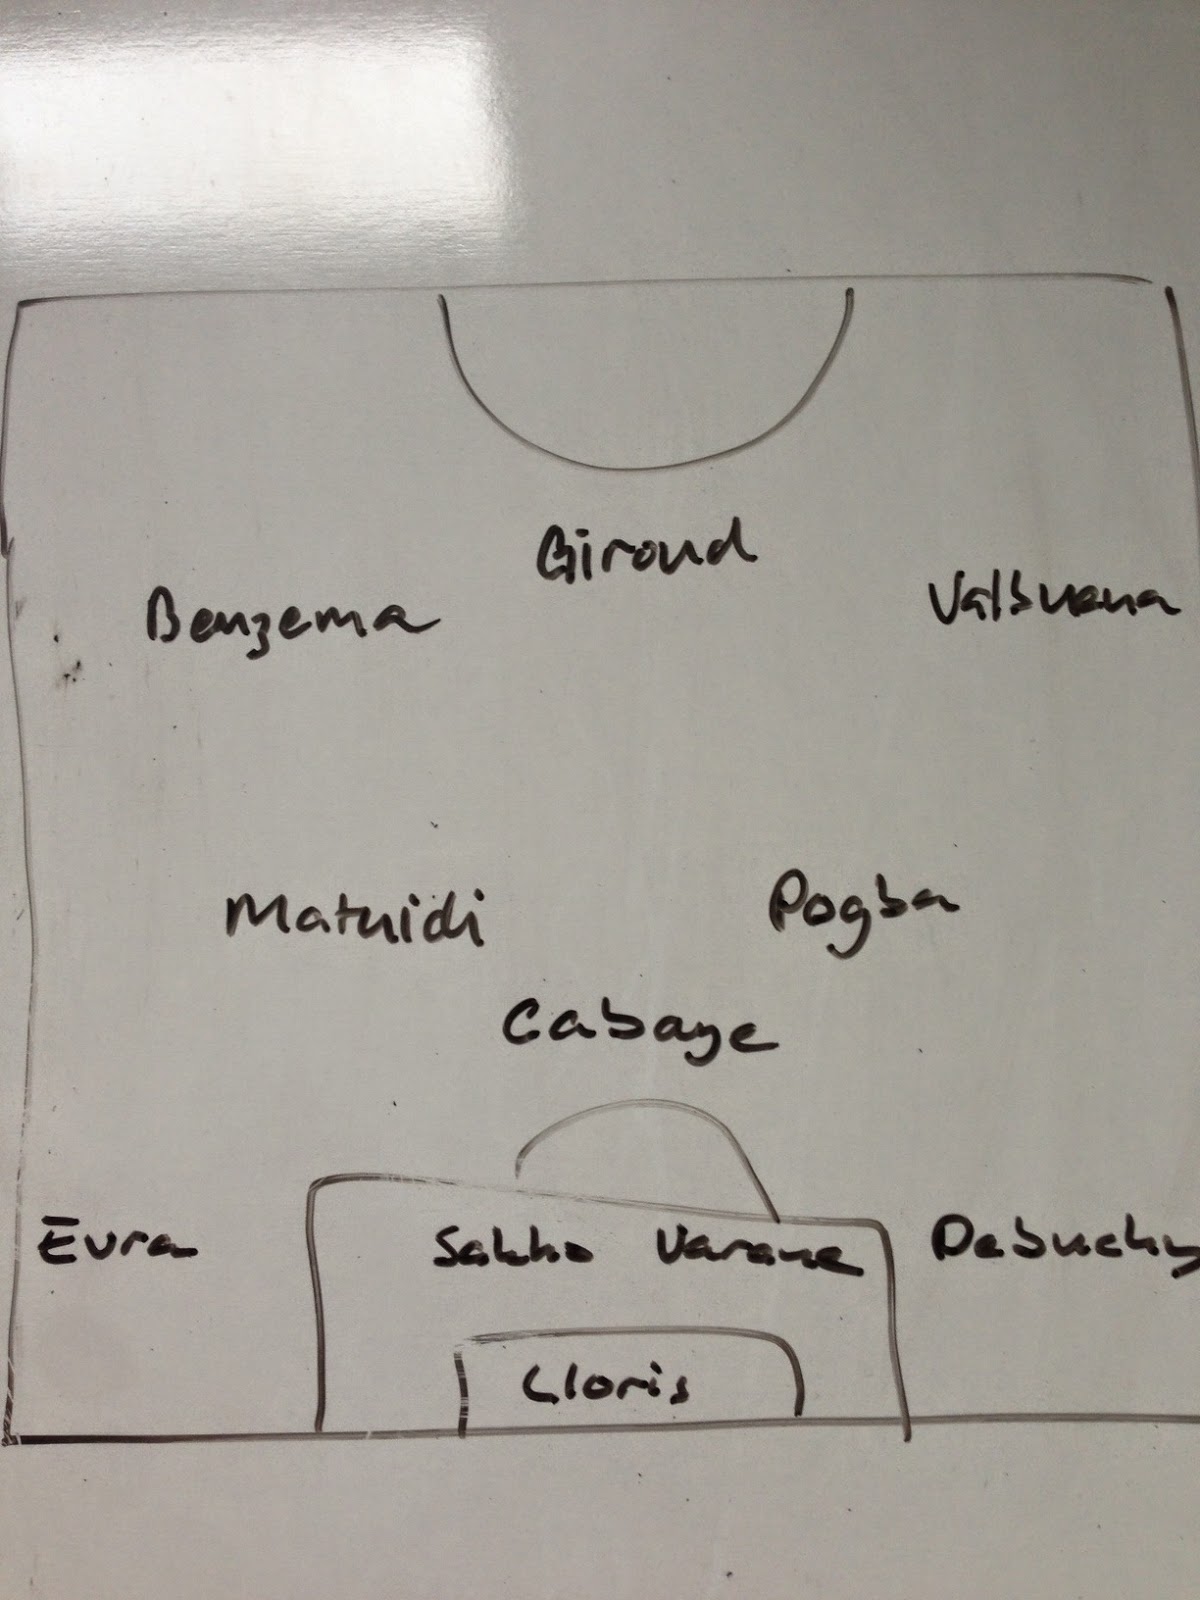 Giroud
Benzema
Valbuena
Matuidi
Pogba
Cabaye
Evra
Sakho
Varane
Debuchy
Lloris